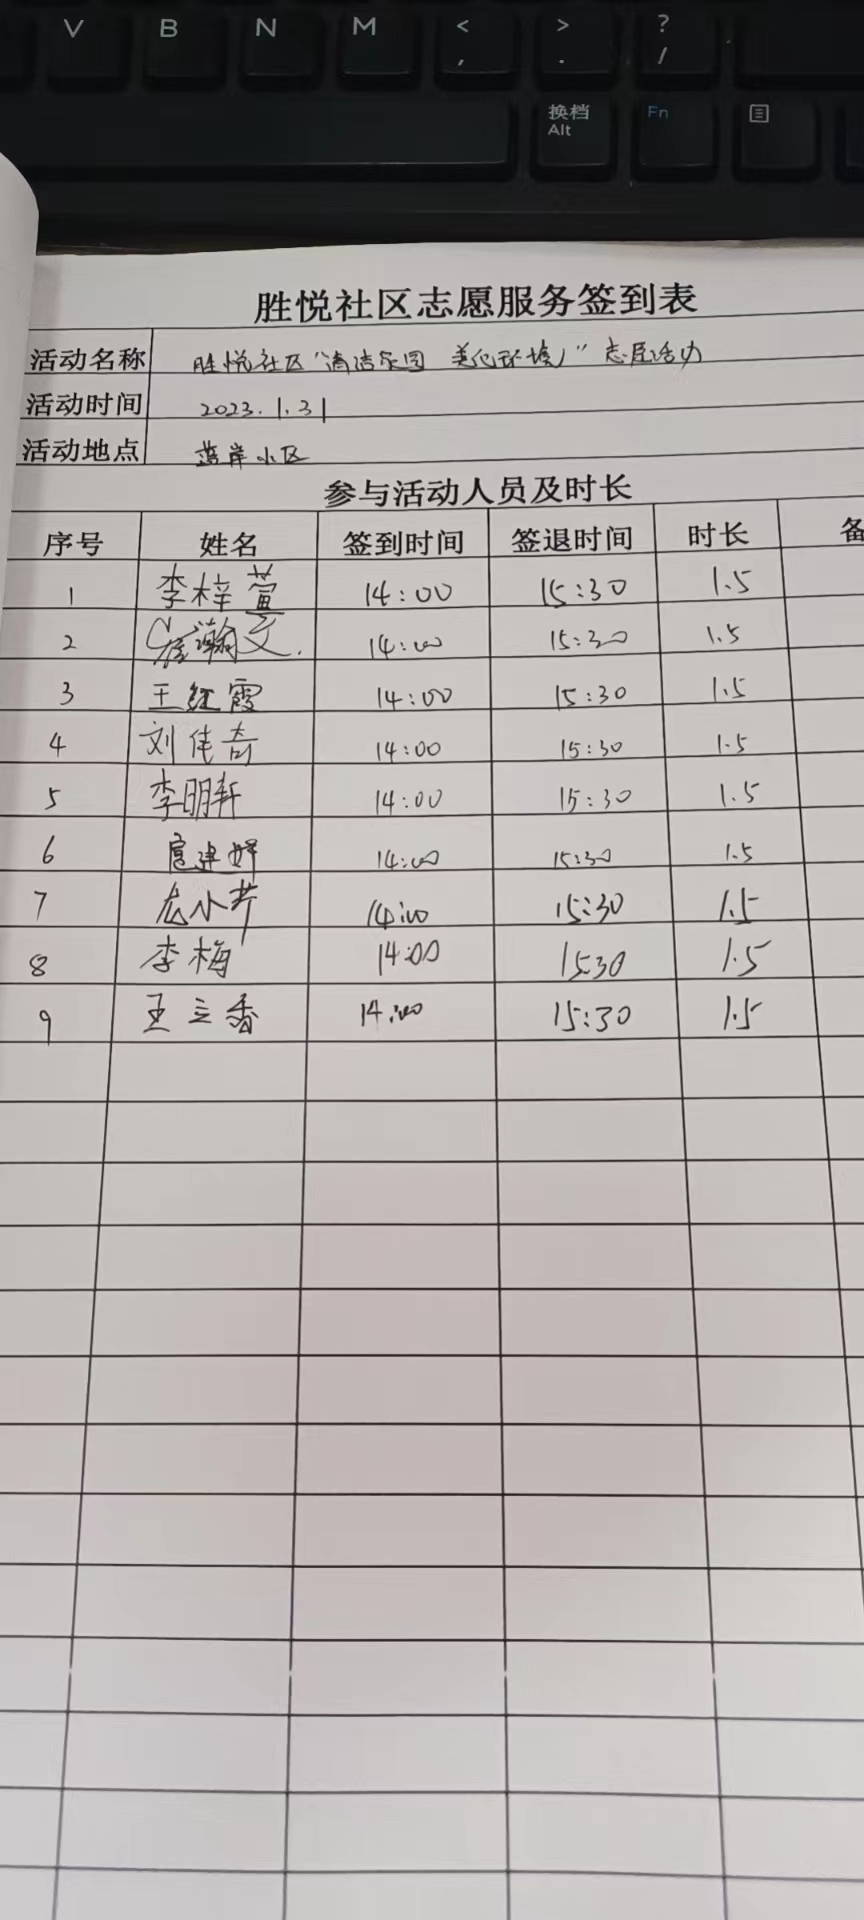 V B N M < , > . ? /
换档 Alt Fn
胜悦社区志愿服务签到表
活动名称 胜悦社区“清洁家园 美化环境”志愿活动
活动时间 2023.1.31
活动地点 蓝岸小区
参与活动人员及时长
序号 姓名 签到时间 签退时间 时长 备
1 李梓萱 14:00 15:30 1.5
2 瀚文 14:00 15:30 1.5
3 王红霞 14:00 15:30 1.5
4 刘佳奇 14:00 15:30 1.5
5 李明轩 14:00 15:30 1.5
6 14:00 15:30 1.5
7 14:00 15:30 1.5
8 李梅 14:00 15:30 1.5
9 王立香 14:00 15:30 1.5